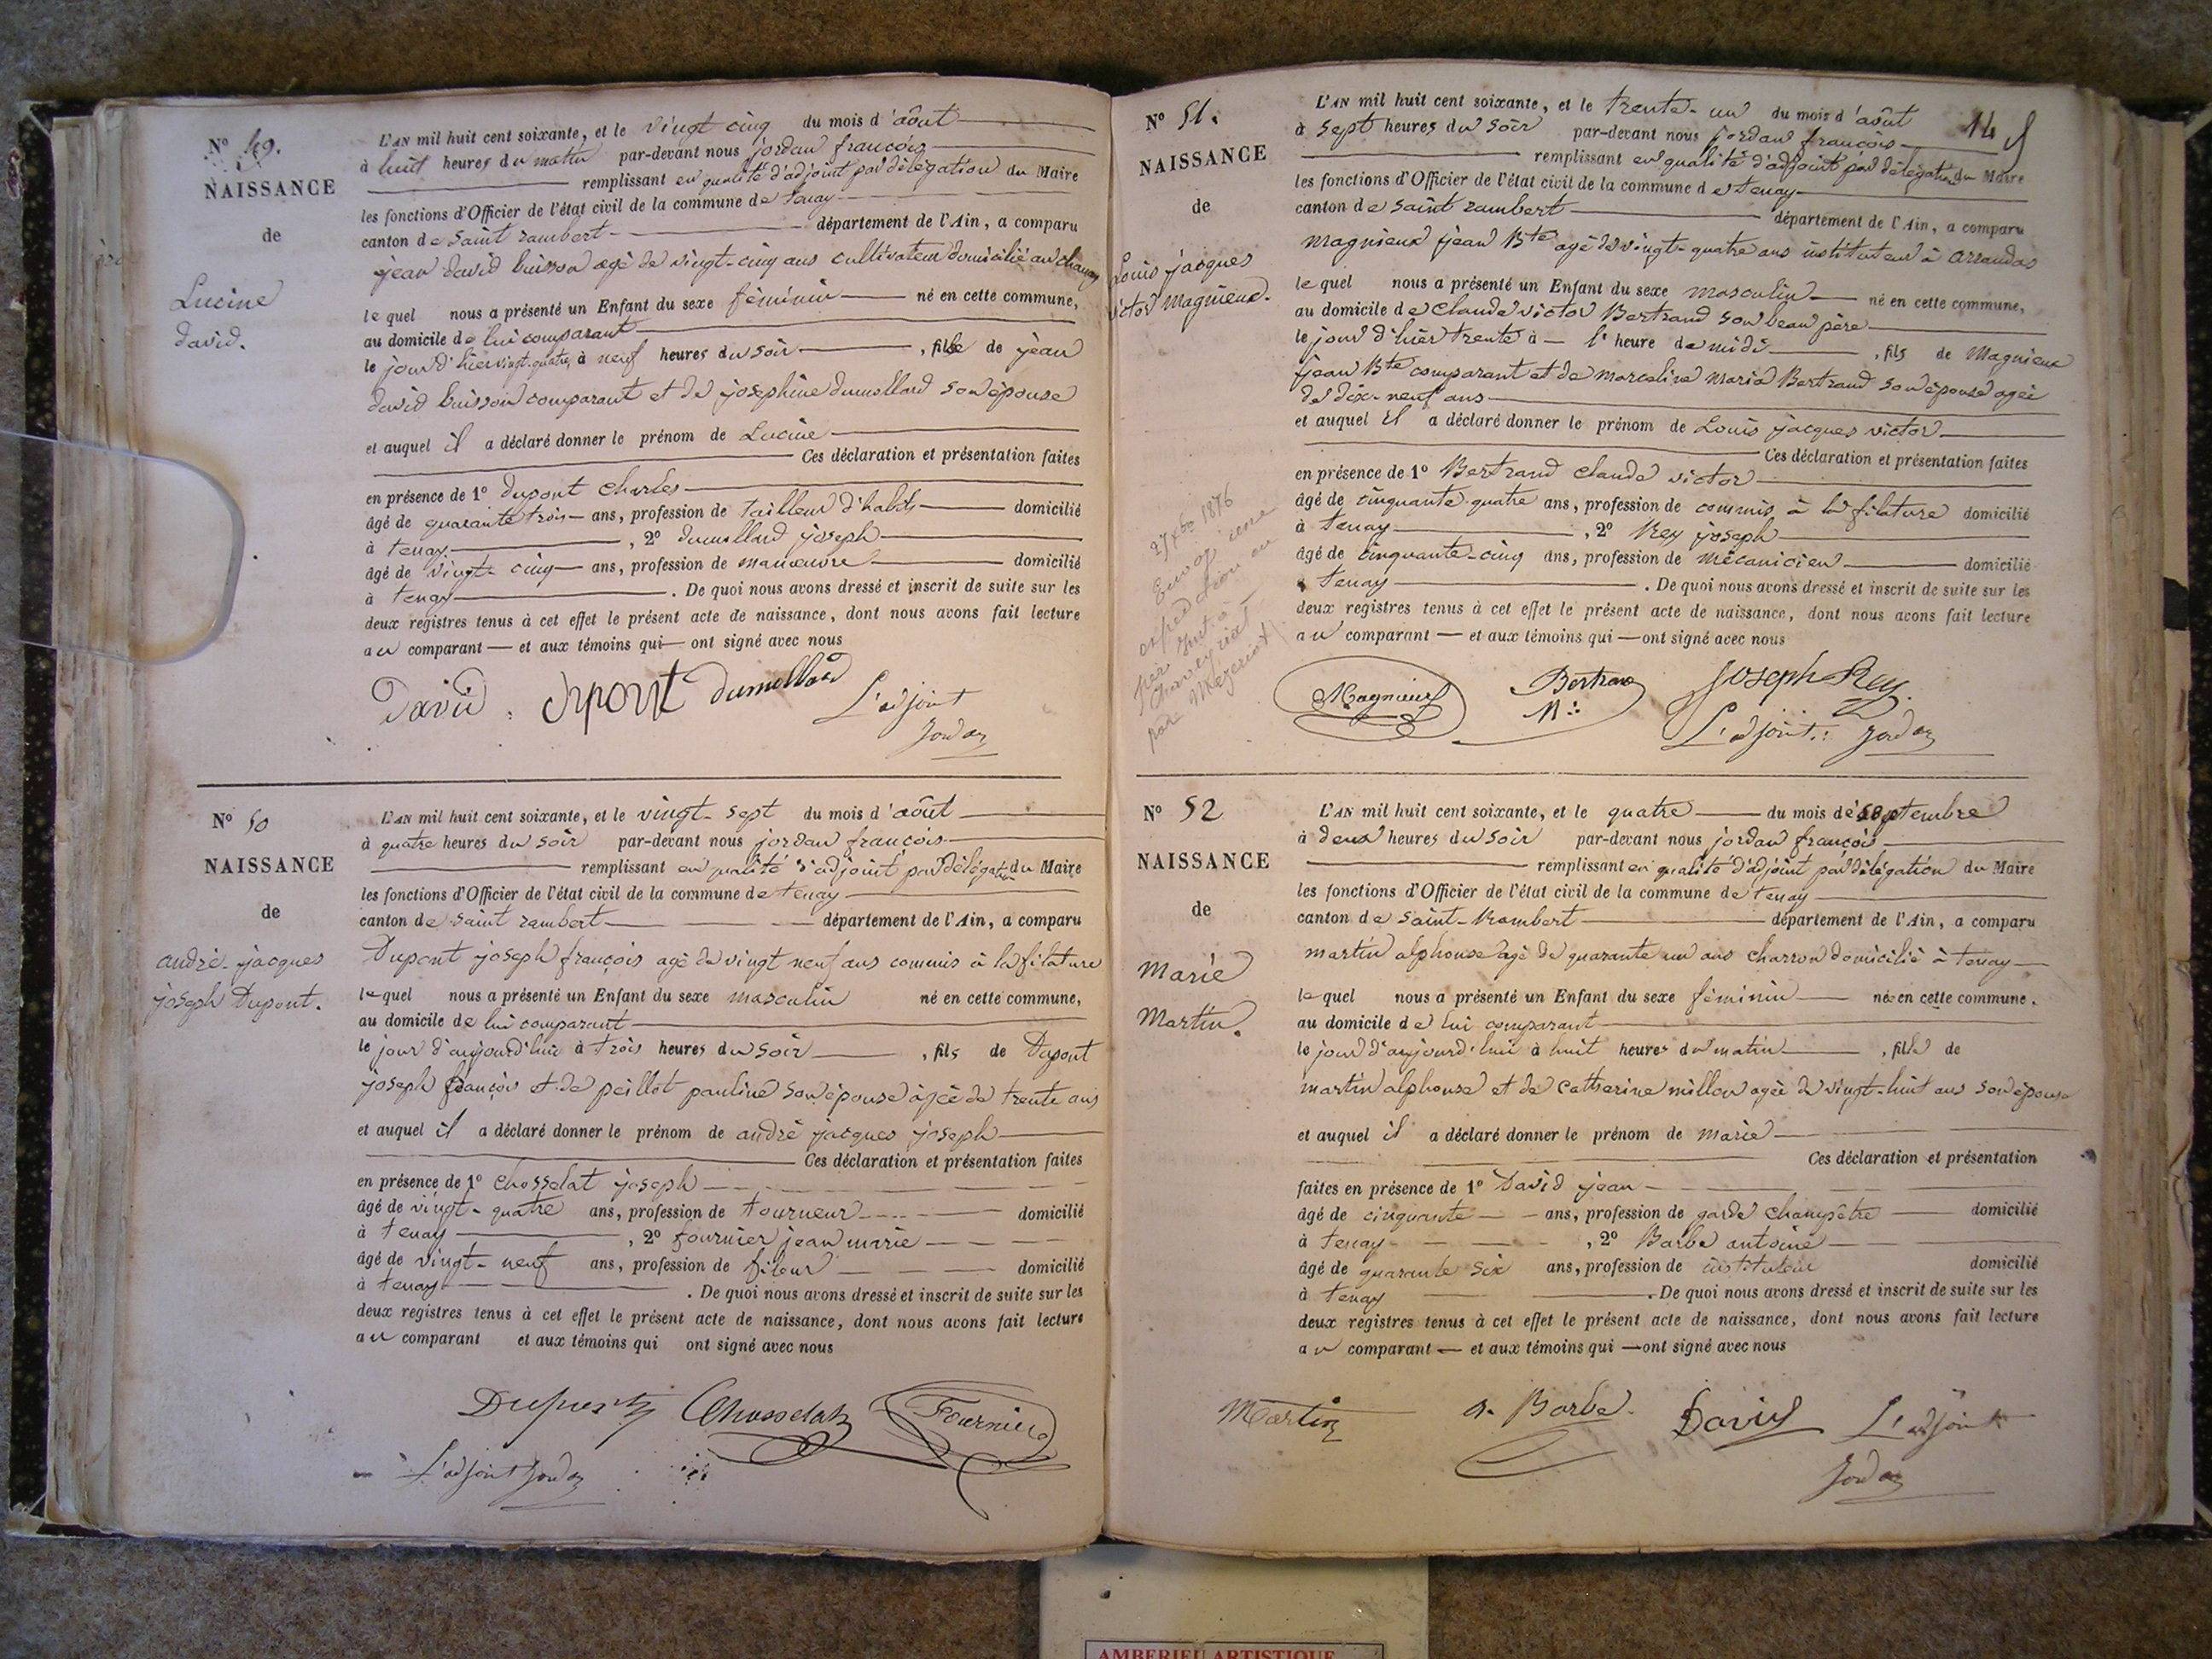 N° 49.
NAISSANCE
de
Lucine
david.
L'AN mil huit cent soixante, et le vingt cinq du mois d'août
à huit heures du matin par-devant nous jordan françois
remplissant en qualité d'adjoint par délégation du Maire
les fonctions d'Officier de l'état civil de la commune de tenay
canton de saint rambert département de l'Ain, a comparu
jean david buisson agé de vingt-cinq ans cultivateur domicilié au
le quel nous a présenté un Enfant du sexe féminin né en cette commune,
au domicile de lui comparant
le jour d'hier vingt-quatre, à neuf heures du soir, fille de jean
david buisson comparant et de josephine dumollard son épouse
et auquel il a déclaré donner le prénom de Lucine
Ces déclaration et présentation faites
en présence de 1° dupont Charles
âgé de quarante trois ans, profession de tailleur d'habits domicilié
à tenay, 2° dumollard joseph
âgé de vingt-cinq ans, profession de manœuvre domicilié
à tenay. De quoi nous avons dressé et inscrit de suite sur les
deux registres tenus à cet effet le présent acte de naissance, dont nous avons fait lecture
au comparant et aux témoins qui ont signé avec nous
David. dupont dumollard L'adjoint
Jordan
N° 50
NAISSANCE
de
andré-jacques
joseph Dupont.
L'AN mil huit cent soixante, et le vingt-sept du mois d'août
à quatre heures du soir par-devant nous jordan françois
remplissant en qualité d'adjoint par délégation du Maire
les fonctions d'Officier de l'état civil de la commune de tenay
canton de saint rambert département de l'Ain, a comparu
Dupont joseph françois agé de vingt neuf ans commis à la filature
le quel nous a présenté un Enfant du sexe masculin né en cette commune,
au domicile de lui comparant
le jour d'aujourd'hui à trois heures du soir, fils de Dupont
joseph françois et de peillot pauline son épouse âgée de trente ans
et auquel il a déclaré donner le prénom de andré jacques joseph
Ces déclaration et présentation faites
en présence de 1° Chosselat joseph
âgé de vingt-quatre ans, profession de tourneur domicilié
à tenay, 2° fournier jean marie
âgé de vingt-neuf ans, profession de fileur domicilié
à tenay. De quoi nous avons dressé et inscrit de suite sur les
deux registres tenus à cet effet le présent acte de naissance, dont nous avons fait lecture
au comparant et aux témoins qui ont signé avec nous
Dupont Chosselat Fournier
L'adjoint Jordan
14
N° 51.
NAISSANCE
de
Louis jacques
victor Magnieux.
27 xbre 1876
L'AN mil huit cent soixante, et le trente-un du mois d'août
à sept heures du soir par-devant nous jordan françois
remplissant en qualité d'adjoint par délégation du Maire
les fonctions d'Officier de l'état civil de la commune de tenay
canton de saint rambert département de l'Ain, a comparu
magnieux jean Bte agé de vingt-quatre ans instituteur à arrandas
le quel nous a présenté un Enfant du sexe masculin né en cette commune,
au domicile de Claude victor Bertrand son beau père
le jour d'hier trente à l'heure de midi, fils de Magnieux
jean Bte comparant et de marceline maria Bertrand son épouse agée
de dix-neuf ans
et auquel il a déclaré donner le prénom de Louis jacques victor
Ces déclaration et présentation faites
en présence de 1° Bertrand Claude victor
âgé de cinquante-quatre ans, profession de commis à la filature domicilié
à tenay, 2° Rey joseph
âgé de cinquante-cinq ans, profession de mécanicien domicilié
à tenay. De quoi nous avons dressé et inscrit de suite sur les
deux registres tenus à cet effet le présent acte de naissance, dont nous avons fait lecture
au comparant et aux témoins qui ont signé avec nous
Magnieux Bertrand Joseph Rey.
L'adjoint: Jordan
N° 52
NAISSANCE
de
Marie
Martin.
L'AN mil huit cent soixante, et le quatre du mois de septembre
à deux heures du soir par-devant nous jordan françois
remplissant en qualité d'adjoint par délégation du Maire
les fonctions d'Officier de l'état civil de la commune de tenay
canton de saint-Rambert département de l'Ain, a comparu
martin alphonse agé de quarante un ans charron domicilié à tenay
le quel nous a présenté un Enfant du sexe féminin né en cette commune.
au domicile de lui comparant
le jour d'aujourd'hui à huit heures du matin, fille de
martin alphonse et de Catherine millon agée de vingt-huit ans son épouse
et auquel il a déclaré donner le prénom de marie
Ces déclaration et présentation
faites en présence de 1° David jean
âgé de cinquante ans, profession de garde champêtre domicilié
à tenay, 2° Barbe antoine
âgé de quarante six ans, profession de instituteur domicilié
à tenay. De quoi nous avons dressé et inscrit de suite sur les
deux registres tenus à cet effet le présent acte de naissance, dont nous avons fait lecture
au comparant et aux témoins qui ont signé avec nous
Martin a. Barbe. David L'adjoint
Jordan
AMBERIEU ARTISTIQUE